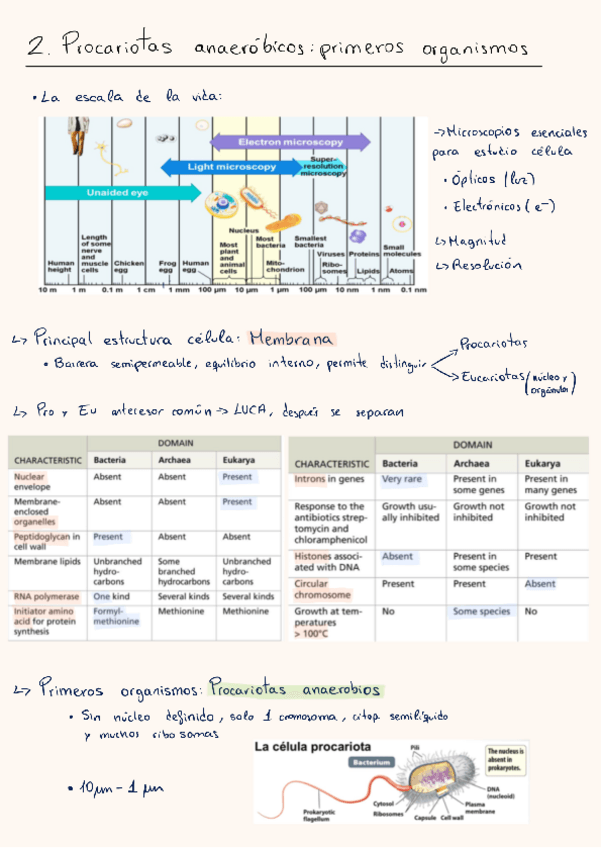 2. Procariotas anaeróbicos: primeros organismos
• La escala de la vida:
Electron microscopy
Light microscopy
Super-
resolution
microscopy
Unaided eye
Human
height
Length
of some
nerve
and
muscle
cells
Chicken
egg
Frog
egg
Human
egg
Most
plant
and
animal
cells
Nucleus
Most
bacteria
Mito-
chondrion
Smallest
bacteria
Viruses
Ribo-
somes
Proteins
Lipids
Small
molecules
Atoms
10 m 1 m 0.1 m 1 cm 1 mm 100 µm 10 µm 1 µm 100 µm 10 nm 1 nm 0.1 nm
-> Microscopios esenciales
para estudio célula
• Ópticos (luz)
• Electrónicos (e-)
↳ Magnitud
↳ Resolución
↳ Principal estructura célula: Membrana
• Barrera semipermeable, equilibrio interno, permite distinguir
Procariotas
Eucariotas (núcleo y
orgánulos)
↳ Pro y Eu antecesor común -> LUCA, después se separan
DOMAIN
CHARACTERISTIC Bacteria Archaea Eukarya
Nuclear envelope Absent Absent Present
Membrane-enclosed organelles Absent Absent Present
Peptidoglycan in cell wall Present Absent Absent
Membrane lipids Unbranched hydrocarbons Some branched hydrocarbons Unbranched hydrocarbons
RNA polymerase One kind Several kinds Several kinds
Initiator amino acid for protein synthesis Formyl-methionine Methionine Methionine
DOMAIN
CHARACTERISTIC Bacteria Archaea Eukarya
Introns in genes Very rare Present in some genes Present in many genes
Response to the antibiotics streptomycin and chloramphenicol Growth usually inhibited Growth not inhibited Growth not inhibited
Histones associated with DNA Absent Present in some species Present
Circular chromosome Present Present Absent
Growth at temperatures > 100°C No Some species No
↳ Primeros organismos: Procariotas anaerobios
• Sin núcleo definido, solo 1 cromosoma, citop. semilíquido
y muchos ribosomas
• 10 µm - 1 µm
La célula procariota
Bacterium
Pili
The nucleus is
absent in
prokaryotes.
DNA
(nucleoid)
Plasma
membrane
Cell wall
Capsule
Cytosol
Ribosomes
Prokaryotic
flagellum